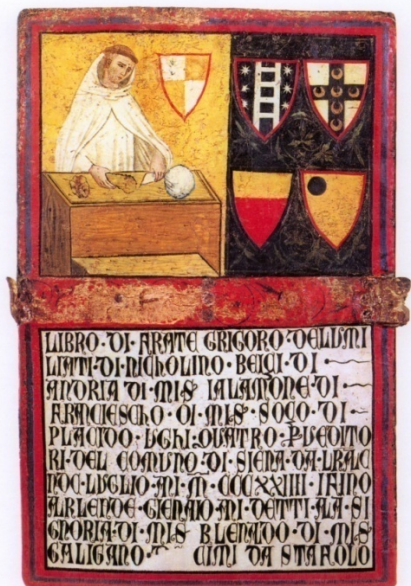 LIBRO·DI·FRATE GRIGORO·DELLUMI
LIATI·DI·NICHOLINO·BEICI·DI
ANDRIA·DI·MIS IALAMONE·DI
FRANCIESCHO·DI·MIS·SOCO·DI
PLACIDO·UGHI:QUATRO·PVEDITO
RI·DEL COMUNO·DI·SIENA·DA·
LUGLIO·ANI·M·CCCXXIIII·INFINO
GIENAIO·ANI·DETTI·ALA·SI
GNORIA·DI·MIS BLENADO·DI·MIS
GALIGANO CIMI DA STAFOLO